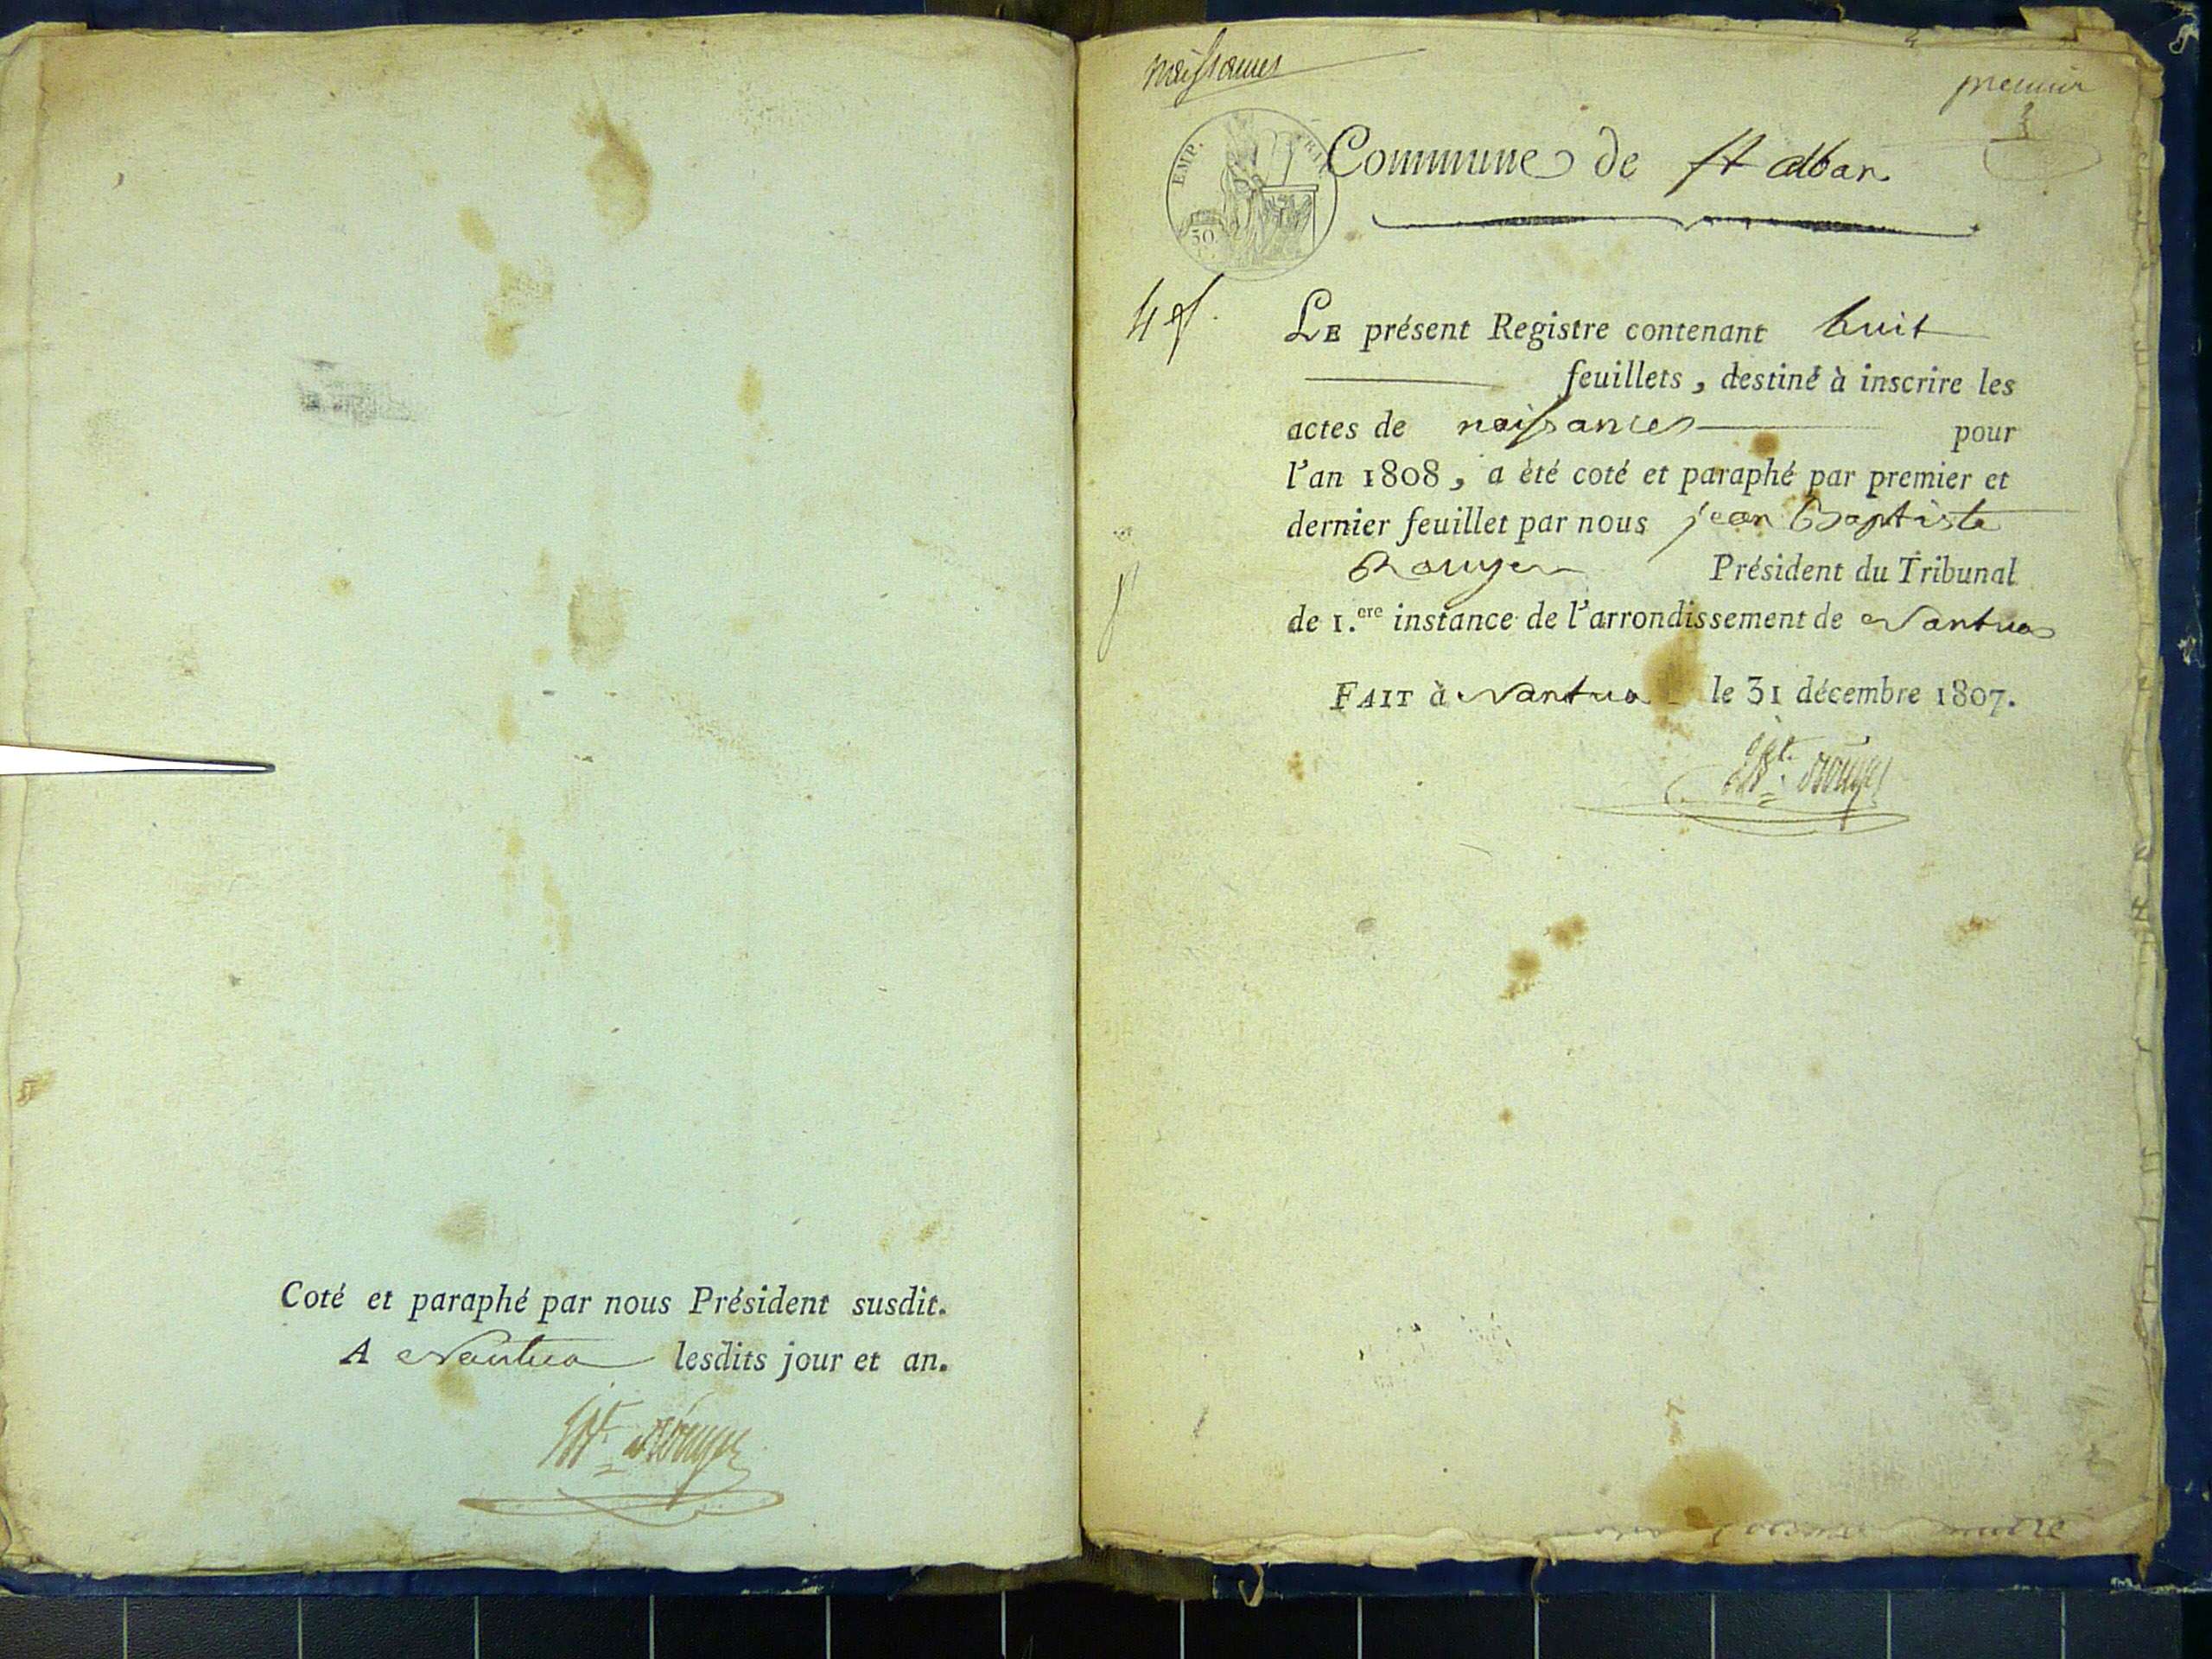 Coté et paraphé par nous Président susdit.
A Nantua lesdits jour et an.
naissances
premier
EMP.
30.
Commune de St alban
Le présent Registre contenant huit
feuillets, destiné à inscrire les
actes de naissances pour
l'an 1808, a été coté et paraphé par premier et
dernier feuillet par nous jean Baptiste
Rouyer Président du Tribunal
de 1.ere instance de l'arrondissement de Nantua
FAIT à Nantua le 31 décembre 1807.